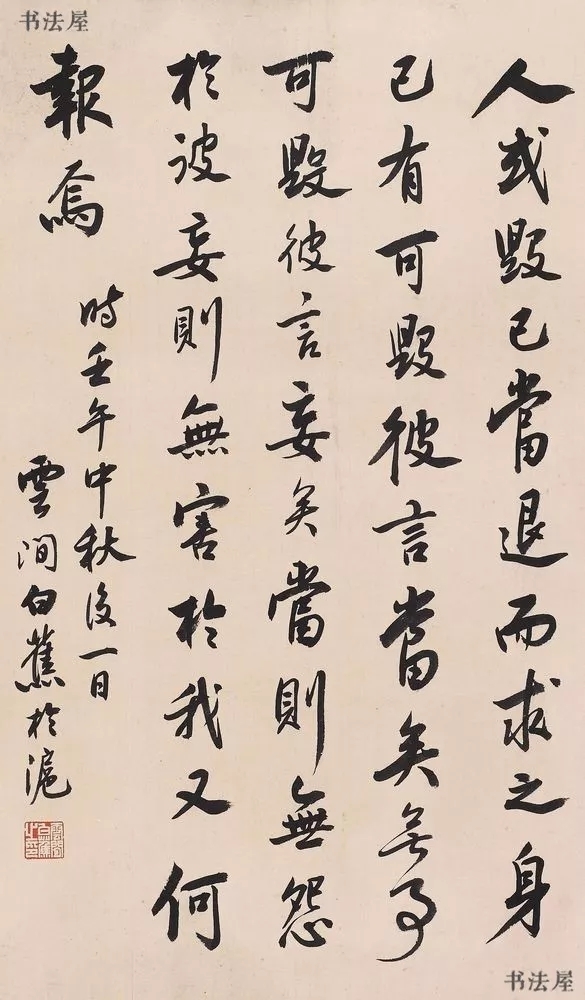 书法屋
人或毁己當退而求之身
己有可毁彼言當矣無所
可毁彼言妄矣當則無怨
於彼妄則無害於我又何
報焉
時壬午中秋後一日
雲間白蕉於滬
书法屋